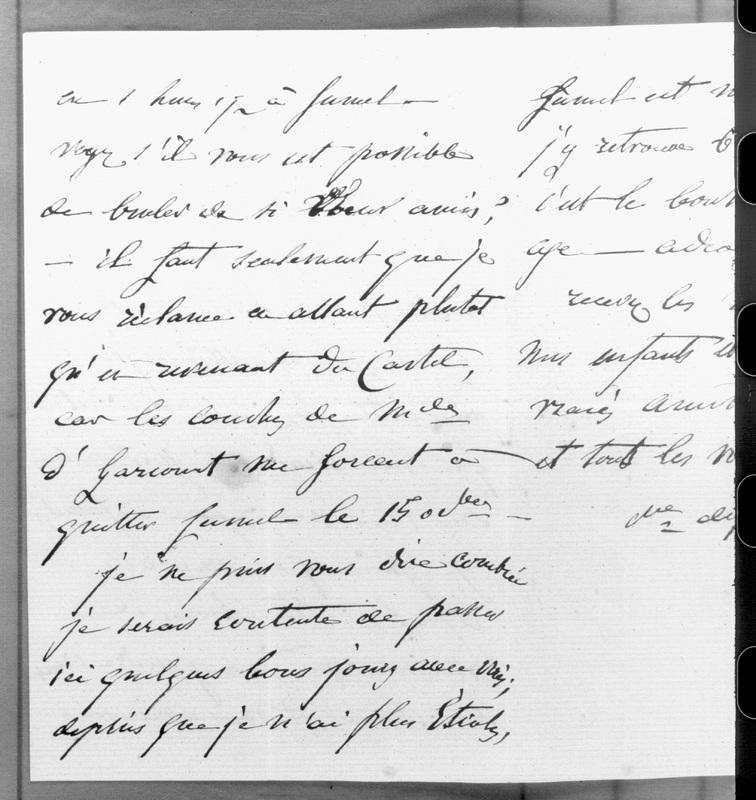 en 1 heure 1/2 à fumel —
voyez s'il vous est possible
de bruler de si vieux amis,?
— il faut seulement que je
vous réclame en allant plutot
qu'en revenant du Castel,
car les couches de Mde
d'Harcourt me forcent à
quitter fumel le 15 8bre —
je ne puis vous dire combien
je serais contente de passer
ici quelques bons jours avec vous,
depuis que je n'ai plus
fumel est
j'y retrouve
c'est le
age —
recevez les
nos enfants
vraies
et tous les